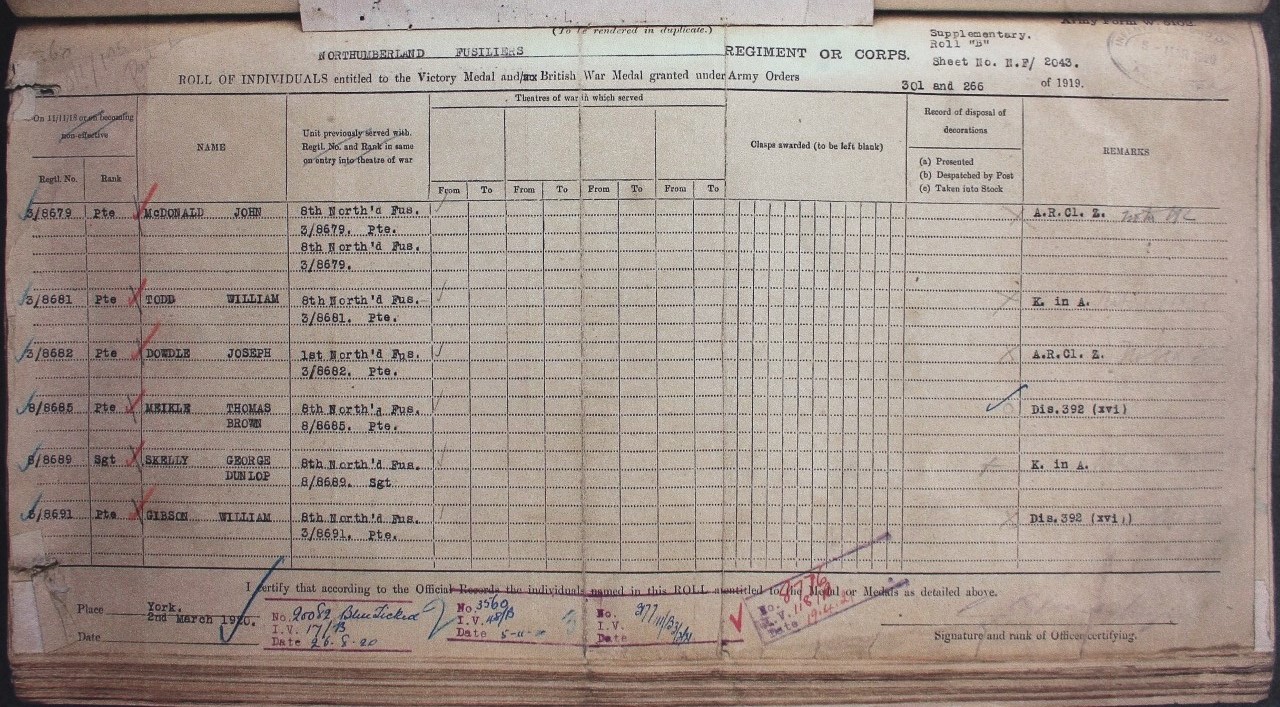 (To be rendered in duplicate.)
Army Form W. 5102.
Supplementary.
Roll "B"
NORTHUMBERLAND FUSILIERS REGIMENT OR CORPS.
Sheet No. N.F/ 2043.
ROLL OF INDIVIDUALS entitled to the Victory Medal and/or British War Medal granted under Army Orders
301 and 266 of 1919.
On 11/11/18 or on becoming non-effective
Regtl. No. Rank
NAME
Unit previously served with.
Regtl. No. and Rank in same
on entry into theatre of war
Theatres of war in which served
From To From To From To From To
Clasps awarded (to be left blank)
Record of disposal of
decorations
(a) Presented
(b) Despatched by Post
(c) Taken into Stock
REMARKS
3/8679 Pte McDONALD JOHN 8th North'd Fus. A.R.Cl. Z.
3/8679. Pte.
8th North'd Fus.
3/8679.
3/8681 Pte TODD WILLIAM 8th North'd Fus. K. in A.
3/8681. Pte.
3/8682 Pte DOWDLE JOSEPH 1st North'd Fus. A.R.Cl. Z.
3/8682. Pte.
8/8685 Pte MEIKLE THOMAS 8th North'd Fus. Dis.392 (xvi)
BROWN 8/8685. Pte.
8/8689 Sgt SKELLY GEORGE 8th North'd Fus. K. in A.
DUNLOP 8/8689. Sgt
/8691 Pte GIBSON WILLIAM 8th North'd Fus. Dis.392 (xvi.)
3/8691. Pte.
I certify that according to the Official Records the individuals named in this ROLL are entitled to the Medal or Medals as detailed above.
Place York.
Date 2nd March 1920.
No. 20082 Blue Ticked
I.V. 17/B
Date 26.5.20
No. 3560
I.V.
Date
No.
I.V.
Date
No. 8776
I.V. 118
Date 19.4.2
Signature and rank of Officer certifying.